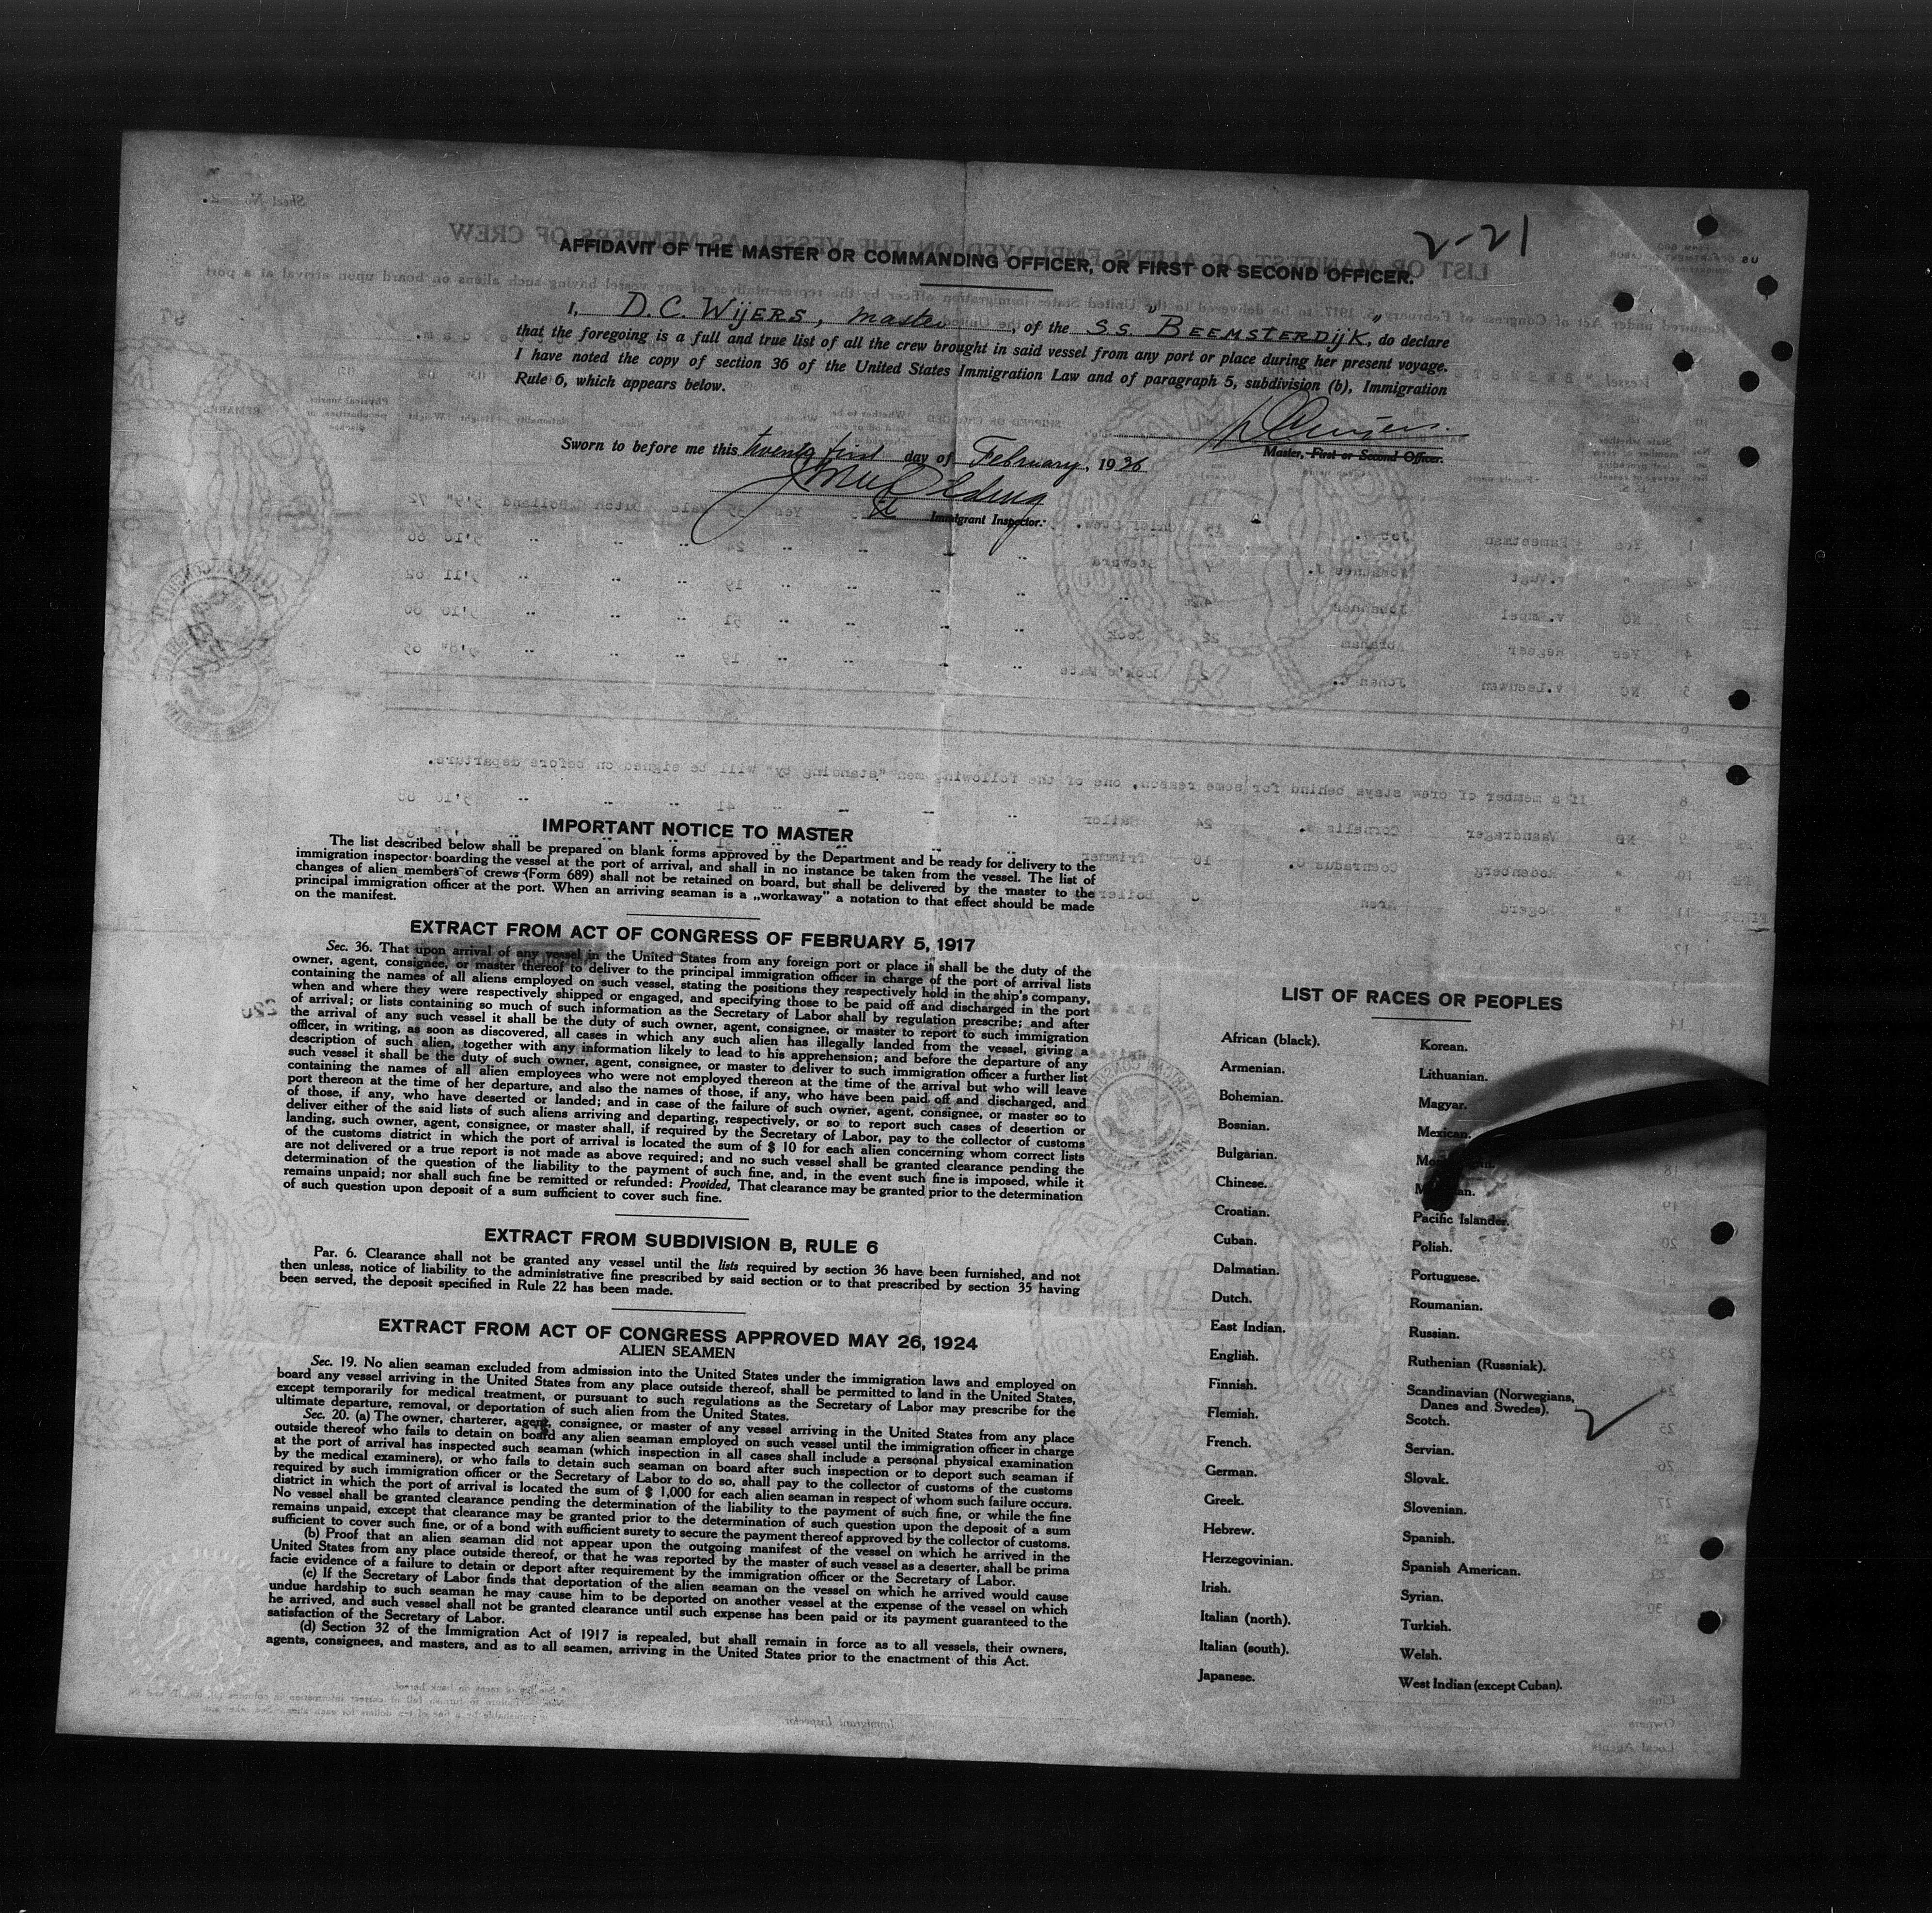 2-21
AFFIDAVIT OF THE MASTER OR COMMANDING OFFICER, OR FIRST OR SECOND OFFICER.
I, D.C. WIJERS, master, of the S.S. "BEEMSTERDIJK", do declare
that the foregoing is a full and true list of all the crew brought in said vessel from any port or place during her present voyage.
I have noted the copy of section 36 of the United States Immigration Law and of paragraph 5, subdivision (b), Immigration
Rule 6, which appears below.
Master, First or Second Officer.
Sworn to before me this twenty first day of February, 1936
Immigrant Inspector.
IMPORTANT NOTICE TO MASTER
The list described below shall be prepared on blank forms approved by the Department and be ready for delivery to the
immigration inspector boarding the vessel at the port of arrival, and shall in no instance be taken from the vessel. The list of
changes of alien members of crews (Form 689) shall not be retained on board, but shall be delivered by the master to the
principal immigration officer at the port. When an arriving seaman is a „workaway" a notation to that effect should be made
on the manifest.
EXTRACT FROM ACT OF CONGRESS OF FEBRUARY 5, 1917
Sec. 36. That upon arrival of any vessel in the United States from any foreign port or place it shall be the duty of the
owner, agent, consignee, or master thereof to deliver to the principal immigration officer in charge of the port of arrival lists
containing the names of all aliens employed on such vessel, stating the positions they respectively hold in the ship's company,
when and where they were respectively shipped or engaged, and specifying those to be paid off and discharged in the port
of arrival; or lists containing so much of such information as the Secretary of Labor shall by regulation prescribe; and after
the arrival of any such vessel it shall be the duty of such owner, agent, consignee, or master to report to such immigration
officer, in writing, as soon as discovered, all cases in which any such alien has illegally landed from the vessel, giving a
description of such alien, together with any information likely to lead to his apprehension; and before the departure of any
such vessel it shall be the duty of such owner, agent, consignee, or master to deliver to such immigration officer a further list
containing the names of all alien employees who were not employed thereon at the time of the arrival but who will leave
port thereon at the time of her departure, and also the names of those, if any, who have been paid off and discharged, and
of those, if any, who have deserted or landed; and in case of the failure of such owner, agent, consignee, or master so to
deliver either of the said lists of such aliens arriving and departing, respectively, or so to report such cases of desertion or
landing, such owner, agent, consignee, or master shall, if required by the Secretary of Labor, pay to the collector of customs
of the customs district in which the port of arrival is located the sum of $ 10 for each alien concerning whom correct lists
are not delivered or a true report is not made as above required; and no such vessel shall be granted clearance pending the
determination of the question of the liability to the payment of such fine, and, in the event such fine is imposed, while it
remains unpaid; nor shall such fine be remitted or refunded: Provided, That clearance may be granted prior to the determination
of such question upon deposit of a sum sufficient to cover such fine.
EXTRACT FROM SUBDIVISION B, RULE 6
Par. 6. Clearance shall not be granted any vessel until the lists required by section 36 have been furnished, and not
then unless, notice of liability to the administrative fine prescribed by said section or to that prescribed by section 35 having
been served, the deposit specified in Rule 22 has been made.
EXTRACT FROM ACT OF CONGRESS APPROVED MAY 26, 1924
ALIEN SEAMEN
Sec. 19. No alien seaman excluded from admission into the United States under the immigration laws and employed on
board any vessel arriving in the United States from any place outside thereof, shall be permitted to land in the United States,
except temporarily for medical treatment, or pursuant to such regulations as the Secretary of Labor may prescribe for the
ultimate departure, removal, or deportation of such alien from the United States.
Sec. 20. (a) The owner, charterer, agent, consignee, or master of any vessel arriving in the United States from any place
outside thereof who fails to detain on board any alien seaman employed on such vessel until the immigration officer in charge
at the port of arrival has inspected such seaman (which inspection in all cases shall include a personal physical examination
by the medical examiners), or who fails to detain such seaman on board after such inspection or to deport such seaman if
required by such immigration officer or the Secretary of Labor to do so, shall pay to the collector of customs of the customs
district in which the port of arrival is located the sum of $ 1,000 for each alien seaman in respect of whom such failure occurs.
No vessel shall be granted clearance pending the determination of the liability to the payment of such fine, or while the fine
remains unpaid, except that clearance may be granted prior to the determination of such question upon the deposit of a sum
sufficient to cover such fine, or of a bond with sufficient surety to secure the payment thereof approved by the collector of customs.
(b) Proof that an alien seaman did not appear upon the outgoing manifest of the vessel on which he arrived in the
United States from any place outside thereof, or that he was reported by the master of such vessel as a deserter, shall be prima
facie evidence of a failure to detain or deport after requirement by the immigration officer or the Secretary of Labor.
(c) If the Secretary of Labor finds that deportation of the alien seaman on the vessel on which he arrived would cause
undue hardship to such seaman he may cause him to be deported on another vessel at the expense of the vessel on which
he arrived, and such vessel shall not be granted clearance until such expense has been paid or its payment guaranteed to the
satisfaction of the Secretary of Labor.
(d) Section 32 of the Immigration Act of 1917 is repealed, but shall remain in force as to all vessels, their owners,
agents, consignees, and masters, and as to all seamen, arriving in the United States prior to the enactment of this Act.
LIST OF RACES OR PEOPLES
African (black).
Armenian.
Bohemian.
Bosnian.
Bulgarian.
Chinese.
Croatian.
Cuban.
Dalmatian.
Dutch.
East Indian.
English.
Finnish.
Flemish.
French.
German.
Greek.
Hebrew.
Herzegovinian.
Irish.
Italian (north).
Italian (south).
Japanese.
Korean.
Lithuanian.
Magyar.
Mexican.
Pacific Islander.
Polish.
Portuguese.
Roumanian.
Russian.
Ruthenian (Russniak).
Scandinavian (Norwegians,
Danes and Swedes).
Scotch.
Servian.
Slovak.
Slovenian.
Spanish.
Spanish American.
Syrian.
Turkish.
Welsh.
West Indian (except Cuban).